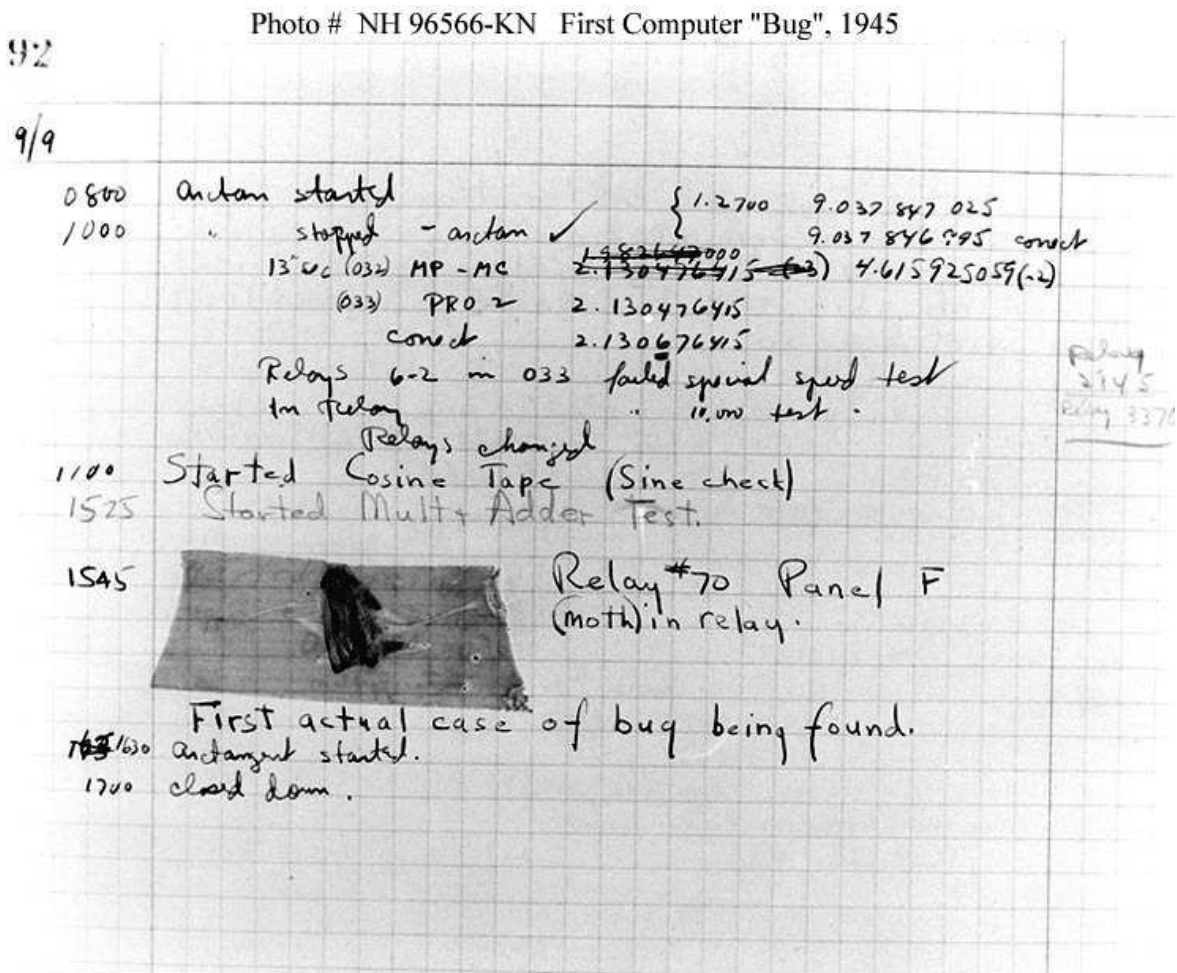 Photo # NH 96566-KN First Computer "Bug", 1945
92
9/9
0800 arctan started { 1.2700 9.037 847 025
1000 " stopped - arctan ✓ 9.037 846 995 correct
13" sec (032) MP - MC 2.130476415 (-3) 4.615925059(-2)
(033) PRO 2 2.130476415
correct 2.130676415
Relays 6-2 in 033 failed special speed test
In relay " 10,000 test .
Relays changed
Relay
2145
Relay 3370
1100 Started Cosine Tape (Sine check)
1525 Started Mult + Adder Test.
1545 Relay #70 Panel F
(moth) in relay.
First actual case of bug being found.
1630 arctangent started.
1700 closed down.